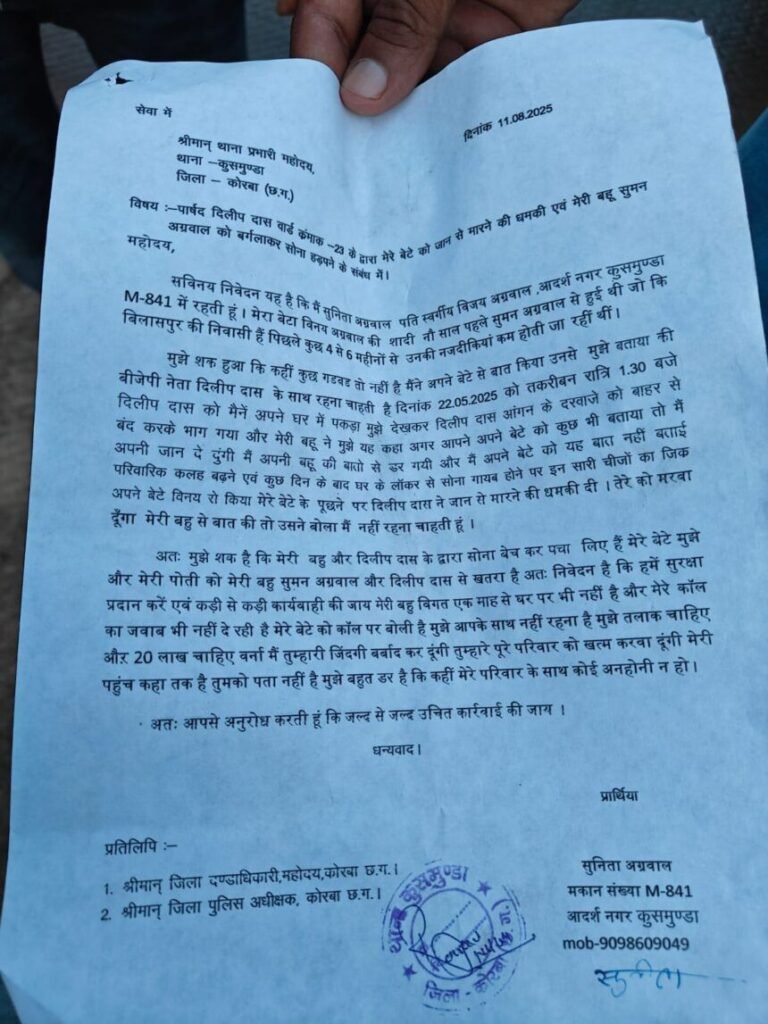 सेवा में
दिनांक 11.08.2025
श्रीमान् थाना प्रभारी महोदय,
थाना –कुसमुण्डा
जिला – कोरबा (छ.ग.)
विषय :–पार्षद दिलीप दास वार्ड कंमाक –23 के द्वारा मेरे बेटे को जान से मारने की धमकी एवं मेरी बहू सुमन
अग्रवाल को बर्गलाकर सोना हड़पने के संबंध में।
महोदय,
सविनय निवेदन यह है कि मैं सुनिता अग्रवाल पति स्वर्गीय विजय अग्रवाल ,आदर्श नगर कुसमुण्डा
M-841 में रहती हूं। मेरा बेटा विनय अग्रवाल की शादी नौ साल पहले सुमन अग्रवाल से हुई थी जो कि
बिलासपुर की निवासी हैं पिछले कुछ 4 से 6 महीनों से उनकी नजदीकियां कम होती जा रहीं थीं।
मुझे शक हुआ कि कहीं कुछ गडबड तो नहीं है मैंने अपने बेटे से बात किया उनसे मुझे बताया की
बीजेपी नेता दिलीप दास के साथ रहना चाहती है दिनांक 22.05.2025 को तकरीबन रात्रि 1.30 बजे
दिलीप दास को मैनें अपने घर में पकड़ा मुझे देखकर दिलीप दास आंगन के दरवाजे को बाहर से
बंद करके भाग गया और मेरी बहू ने मुझे यह कहा अगर आपने अपने बेटे को कुछ भी बताया तो मैं
अपनी जान दे दुंगी मैं अपनी बहू की बातो से डर गयी और मैं अपने बेटे को यह बात नहीं बताई
परिवारिक कलह बढ़ने एवं कुछ दिन के बाद घर के लॉकर से सोना गायब होने पर इन सारी चीजों का जिक
अपने बेटे विनय से किया मेरे बेटे के पूछने पर दिलीप दास ने जान से मारने की धमकी दी । तेरे को मरवा
दूँगा मेरी बहु से बात की तो उसने बोला मैं नहीं रहना चाहती हूं ।
अतः मुझे शक है कि मेरी बहु और दिलीप दास के द्वारा सोना बेच कर पचा लिए हैं मेरे बेटे मुझे
और मेरी पोती को मेरी बहु सुमन अग्रवाल और दिलीप दास से खतरा है अतः निवेदन है कि हमें सुरक्षा
प्रदान करें एबं कड़ी से कड़ी कार्यवाही की जाय मेरी बहु बिगत एक माह से घर पर भी नहीं है और मेरे कॉल
का जवाब भी नहीं दे रही है मेरे बेटे को कॉल पर बोली है मुझे आपके साथ नहीं रहना है मुझे तलाक चाहिए
और 20 लाख चाहिए वर्ना मैं तुम्हारी जिंदगी बर्बाद कर दूंगी तुम्हारे पूरे परिवार को खत्म करवा दूंगी मेरी
पहुंच कहा तक है तुमको पता नहीं है मुझे बहुत डर है कि कहीं मेरे परिवार के साथ कोई अनहोनी न हो।
अतः आपसे अनुरोध करती हूं कि जल्द से जल्द उचित कार्रवाई की जाय ।
धन्यवाद।
प्रार्थिया
प्रतिलिपि :–
1. श्रीमान् जिला दण्डाधिकारी,महोदय,कोरबा छ.ग.।
2. श्रीमान् जिला पुलिस अधीक्षक, कोरबा छ.ग.।
सुनिता अग्रवाल
मकान संख्या M-841
आदर्श नगर कुसमुण्डा
mob-9098609049
थाना कुसमुण्डा
जिला - कोरबा (छ.ग.)
सुनीता